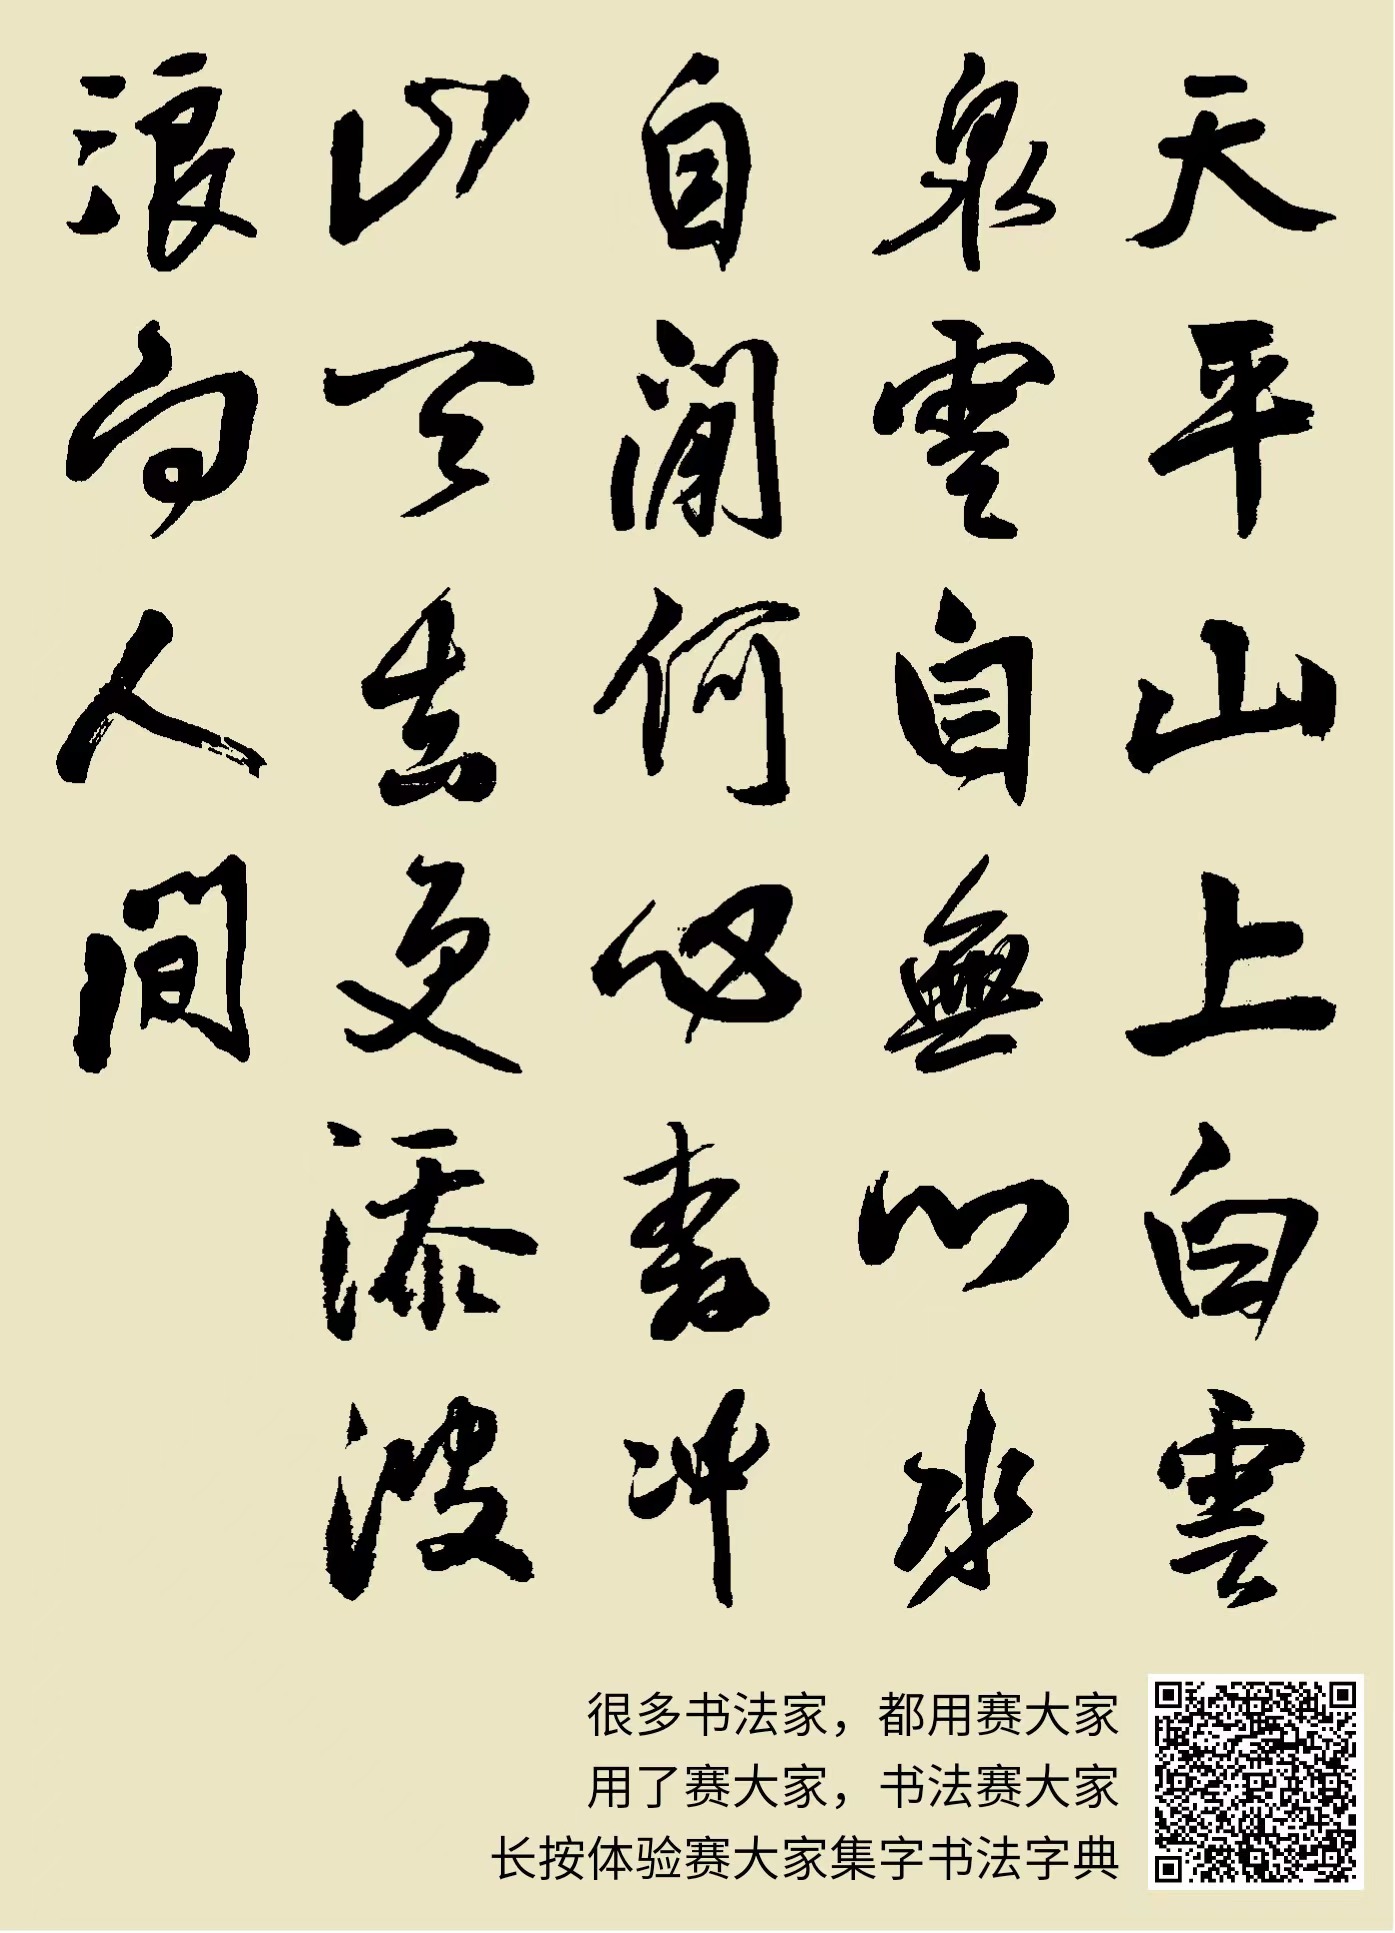 天平山上白雲
泉雲自無心水
自閒何必奔冲
山下去更添波
浪向人間
很多书法家，都用赛大家
用了赛大家，书法赛大家
长按体验赛大家集字书法字典